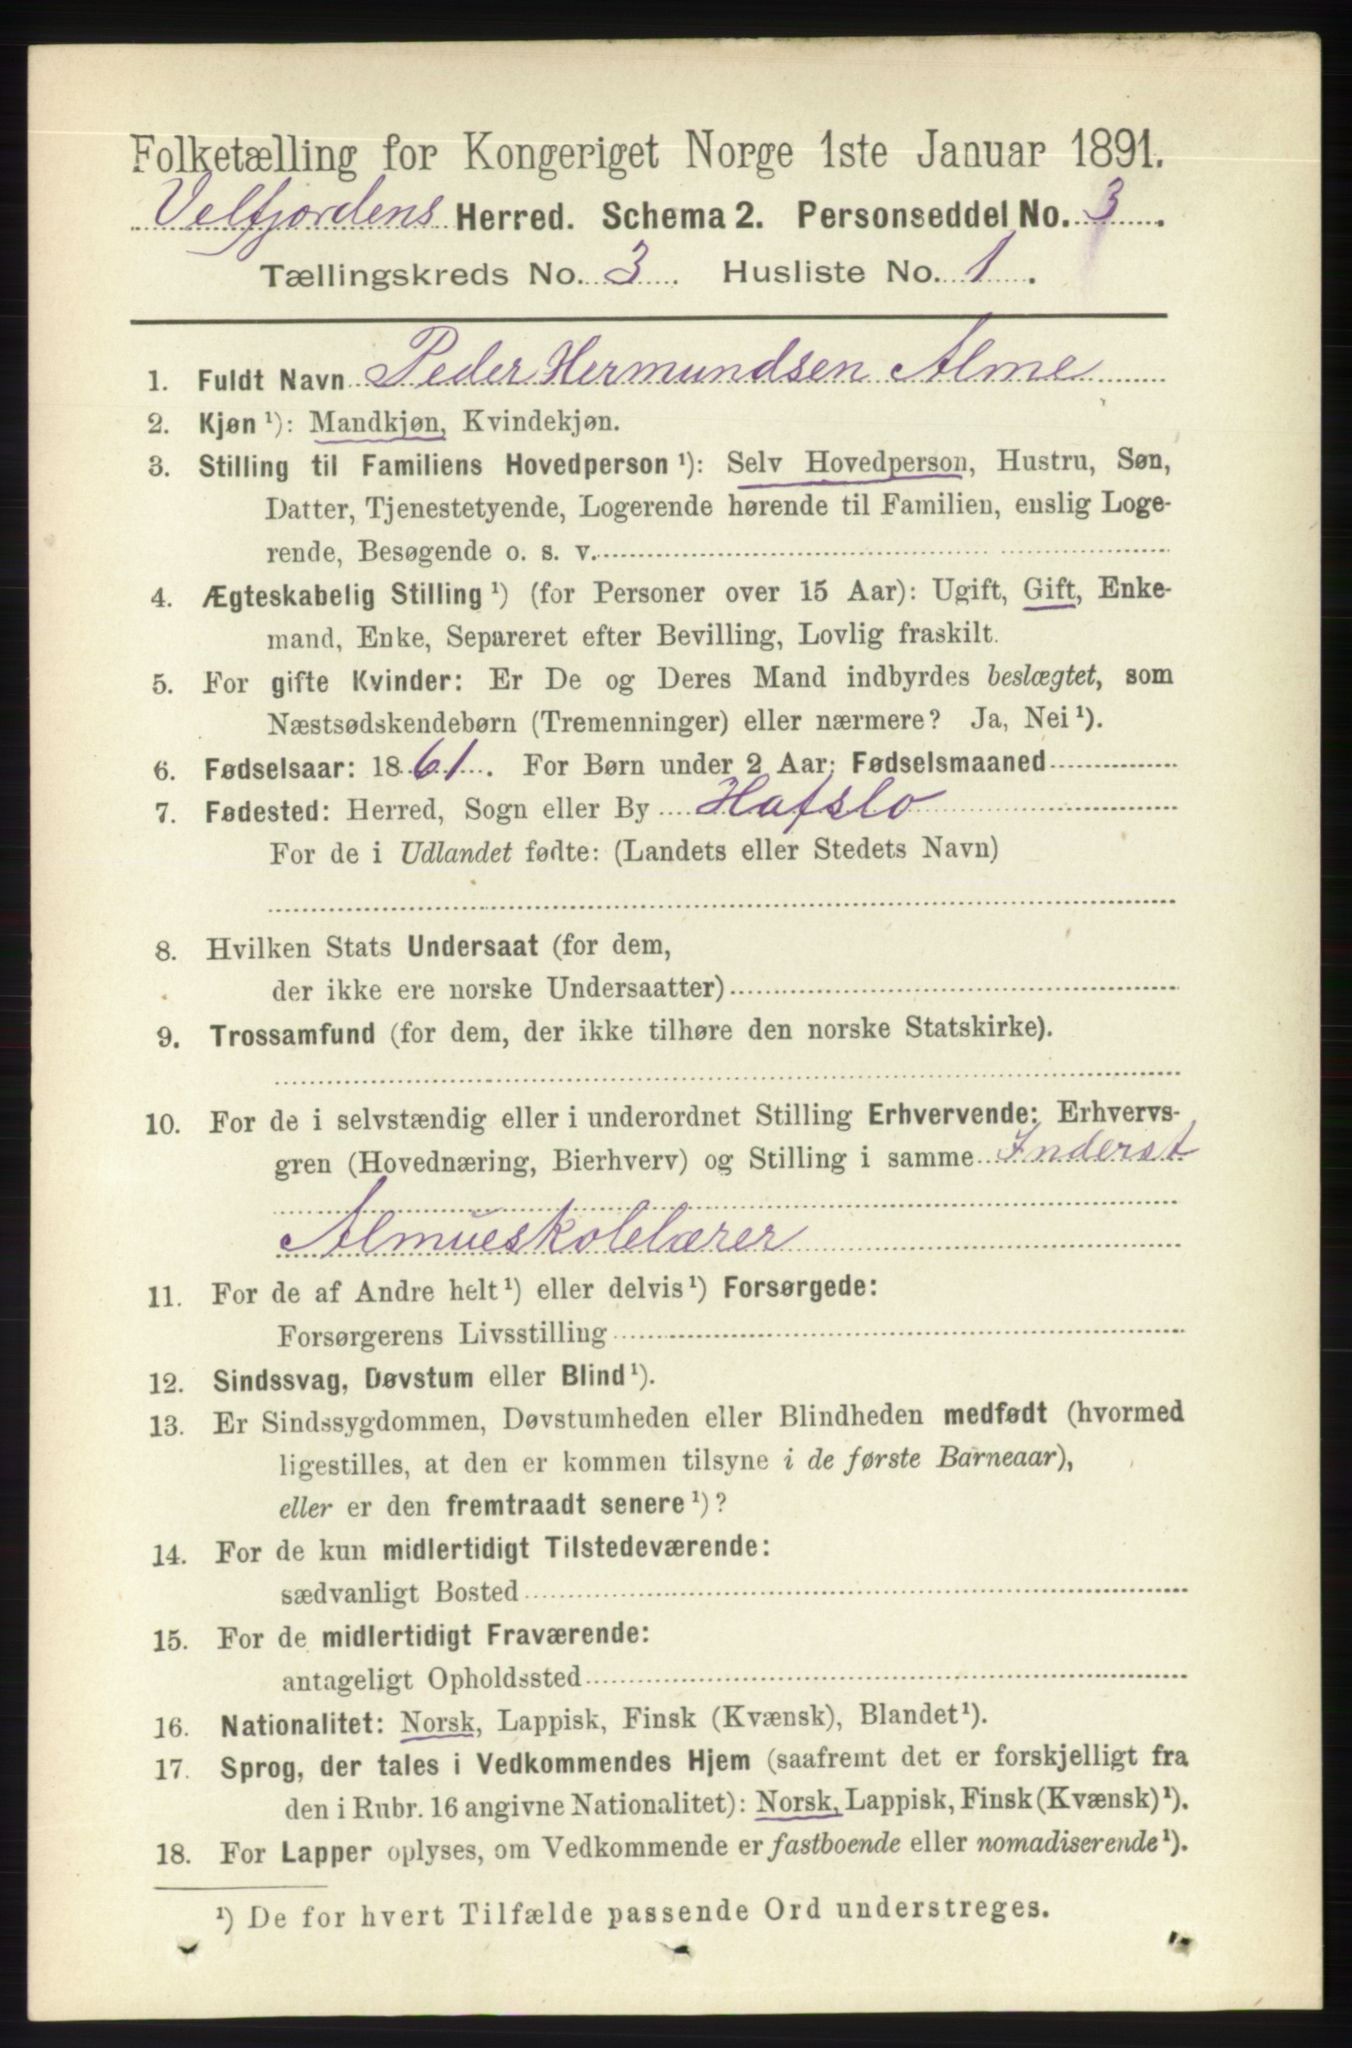 Folketælling for Kongeriget Norge 1ste Januar 1891.
Velfjordens Herred. Schema 2. Personseddel No. 3.
Tællingskreds No. 3. Husliste No. 1.
1. Fuldt Navn Peder Hermundsen Alme
2. Kjøn ¹): Mandkjøn, Kvindekjøn.
3. Stilling til Familiens Hovedperson ¹): Selv Hovedperson, Hustru, Søn,
Datter, Tjenestetyende, Logerende hørende til Familien, enslig Loge-
rende, Besøgende o. s. v.
4. Ægteskabelig Stilling ¹) (for Personer over 15 Aar): Ugift, Gift, Enke-
mand, Enke, Separeret efter Bevilling, Lovlig fraskilt.
5. For gifte Kvinder: Er De og Deres Mand indbyrdes beslægtet, som
Næstsødskendebørn (Tremenninger) eller nærmere? Ja, Nei ¹).
6. Fødselsaar: 1861. For Børn under 2 Aar: Fødselsmaaned
7. Fødested: Herred, Sogn eller By Hafslo
For de i Udlandet fødte: (Landets eller Stedets Navn)
8. Hvilken Stats Undersaat (for dem,
der ikke ere norske Undersaatter)
9. Trossamfund (for dem, der ikke tilhøre den norske Statskirke).
10. For de i selvstændig eller i underordnet Stilling Erhvervende: Erhvervs-
gren (Hovednæring, Bierhverv) og Stilling i samme Inderst
Almueskolelærer
11. For de af Andre helt ¹) eller delvis ¹) Forsørgede:
Forsørgerens Livsstilling
12. Sindssvag, Døvstum eller Blind ¹).
13. Er Sindssygdommen, Døvstumheden eller Blindheden medfødt (hvormed
ligestilles, at den er kommen tilsyne i de første Barneaar),
eller er den fremtraadt senere ¹)?
14. For de kun midlertidigt Tilstedeværende:
sædvanligt Bosted
15. For de midlertidigt Fraværende:
antageligt Opholdssted
16. Nationalitet: Norsk, Lappisk, Finsk (Kvænsk), Blandet ¹).
17. Sprog, der tales i Vedkommendes Hjem (saafremt det er forskjelligt fra
den i Rubr. 16 angivne Nationalitet): Norsk, Lappisk, Finsk (Kvænsk) ¹).
18. For Lapper oplyses, om Vedkommende er fastboende eller nomadiserende ¹).
¹) De for hvert Tilfælde passende Ord understreges.